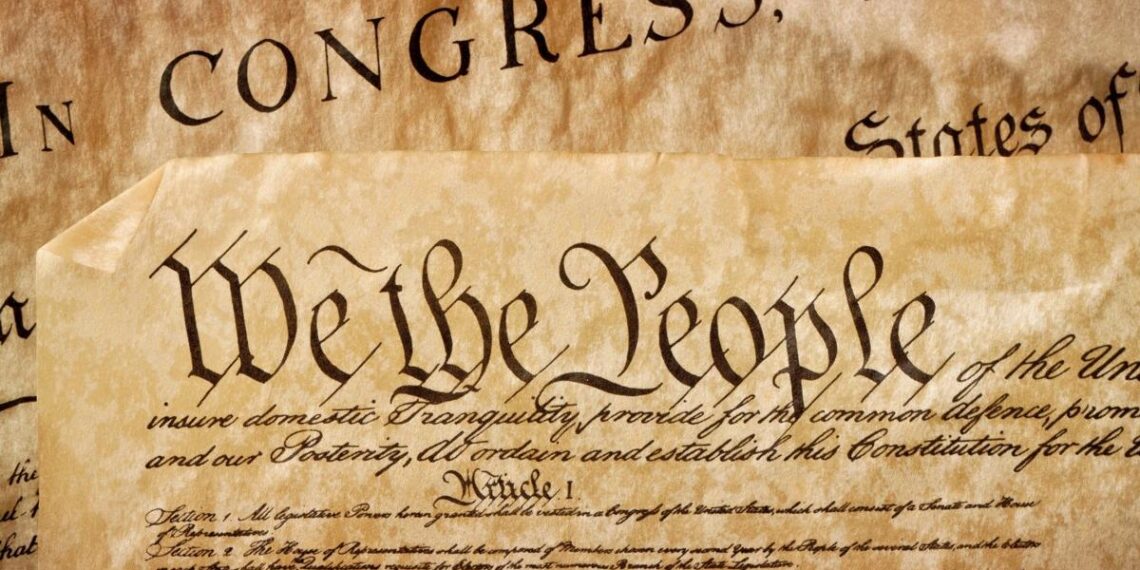 IN CONGRESS,
States of
a
We the People of the Un
insure domestic Tranquility, provide for the common defence, prom
and our Posterity, do ordain and establish this Constitution for the U
Article I.
the
that
Section 1. All legislative Powers herein granted shall be vested in a Congress of the United States, which shall consist of a Senate and House
of Representatives.
Section 2. The House of Representatives shall be composed of Members chosen every second Year by the People of the several States, and the Electors
shall have Qualifications requisite for Electors of the most numerous Branch of the State Legislature.